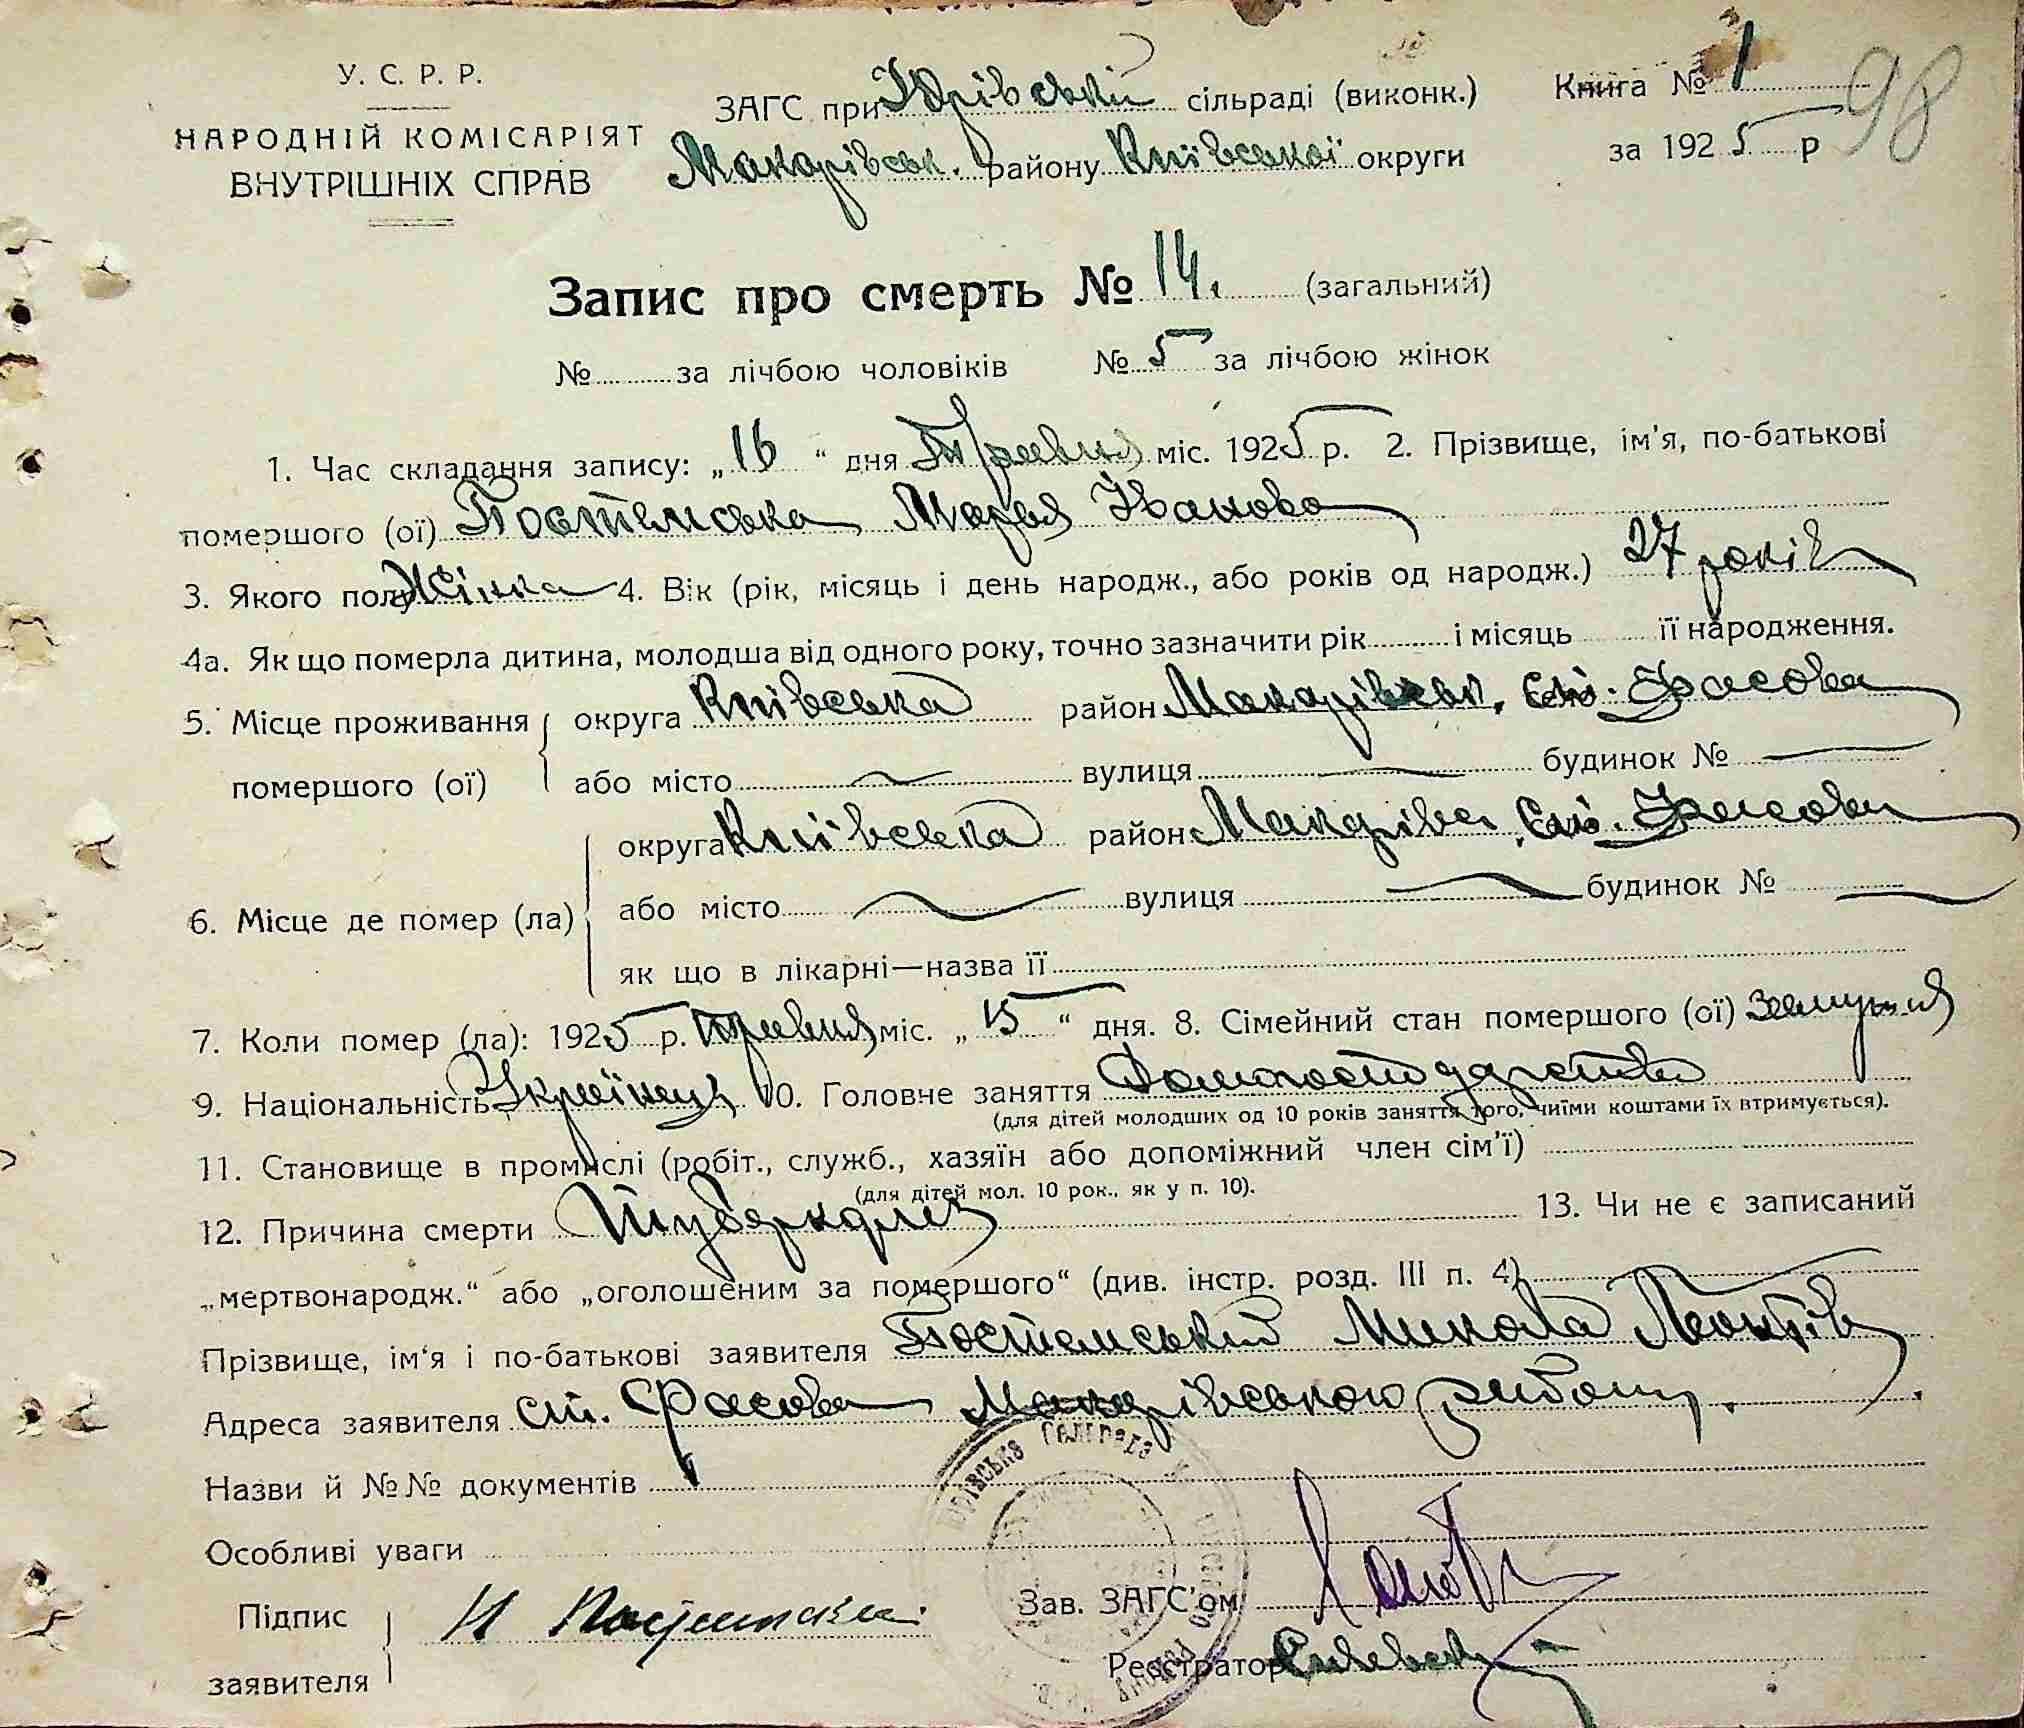 У. С. Р. Р.
НАРОДНІЙ КОМІСАРІЯТ
ВНУТРІШНІХ СПРАВ
ЗАГС при Юрівській сільраді (виконк.)
Макарівськ. району Київської округи
Книга № 1
за 1925 р
98
Запис про смерть № 14. (загальний)
№ за лічбою чоловіків № 5 за лічбою жінок
1. Час складання запису: „16“ дня Травня міс. 1925 р. 2. Прізвище, ім'я, по-батькові
помершого (ої) Постемська Марья Іванова
3. Якого полу Жінка 4. Вік (рік, місяць і день народж., або років од народж.) 27 років
4а. Як що померла дитина, молодша від одного року, точно зазначити рік і місяць її народження.
5. Місце проживання округа Київська район Макарівськ. Фасова
помершого (ої) або місто — вулиця — будинок № —
округа Київська район Макарівсь Фасова
6. Місце де помер (ла) або місто — вулиця — будинок № —
як що в лікарні—назва її
7. Коли помер (ла): 1925 р. травня міс. „15“ дня. 8. Сімейний стан помершого (ої) Замужня
9. Національність Українець 10. Головне заняття Домогосподарство
(для дітей молодших од 10 років заняття того, чиїми коштами їх втримується).
11. Становище в промислі (робіт., служб., хазяїн або допоміжний член сім'ї)
(для дітей мол. 10 рок., як у п. 10).
12. Причина смерти Туберкульоз 13. Чи не є записаний
„мертвонародж.“ або „оголошеним за помершого“ (див. інстр. розд. III п. 4)
Прізвище, ім'я і по-батькові заявителя Постемський Микола Леонтів
Адреса заявителя Фасова Макарівського району.
Назви й №№ документів
Особливі уваги
Підпис
заявителя
Зав. ЗАГС'ом
Реєстратор
Юрівська Сільрада